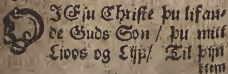 O JEsu Christe þu lifan-
de Guds Son / þu mitt
Lioos og Lijf / Til þijn